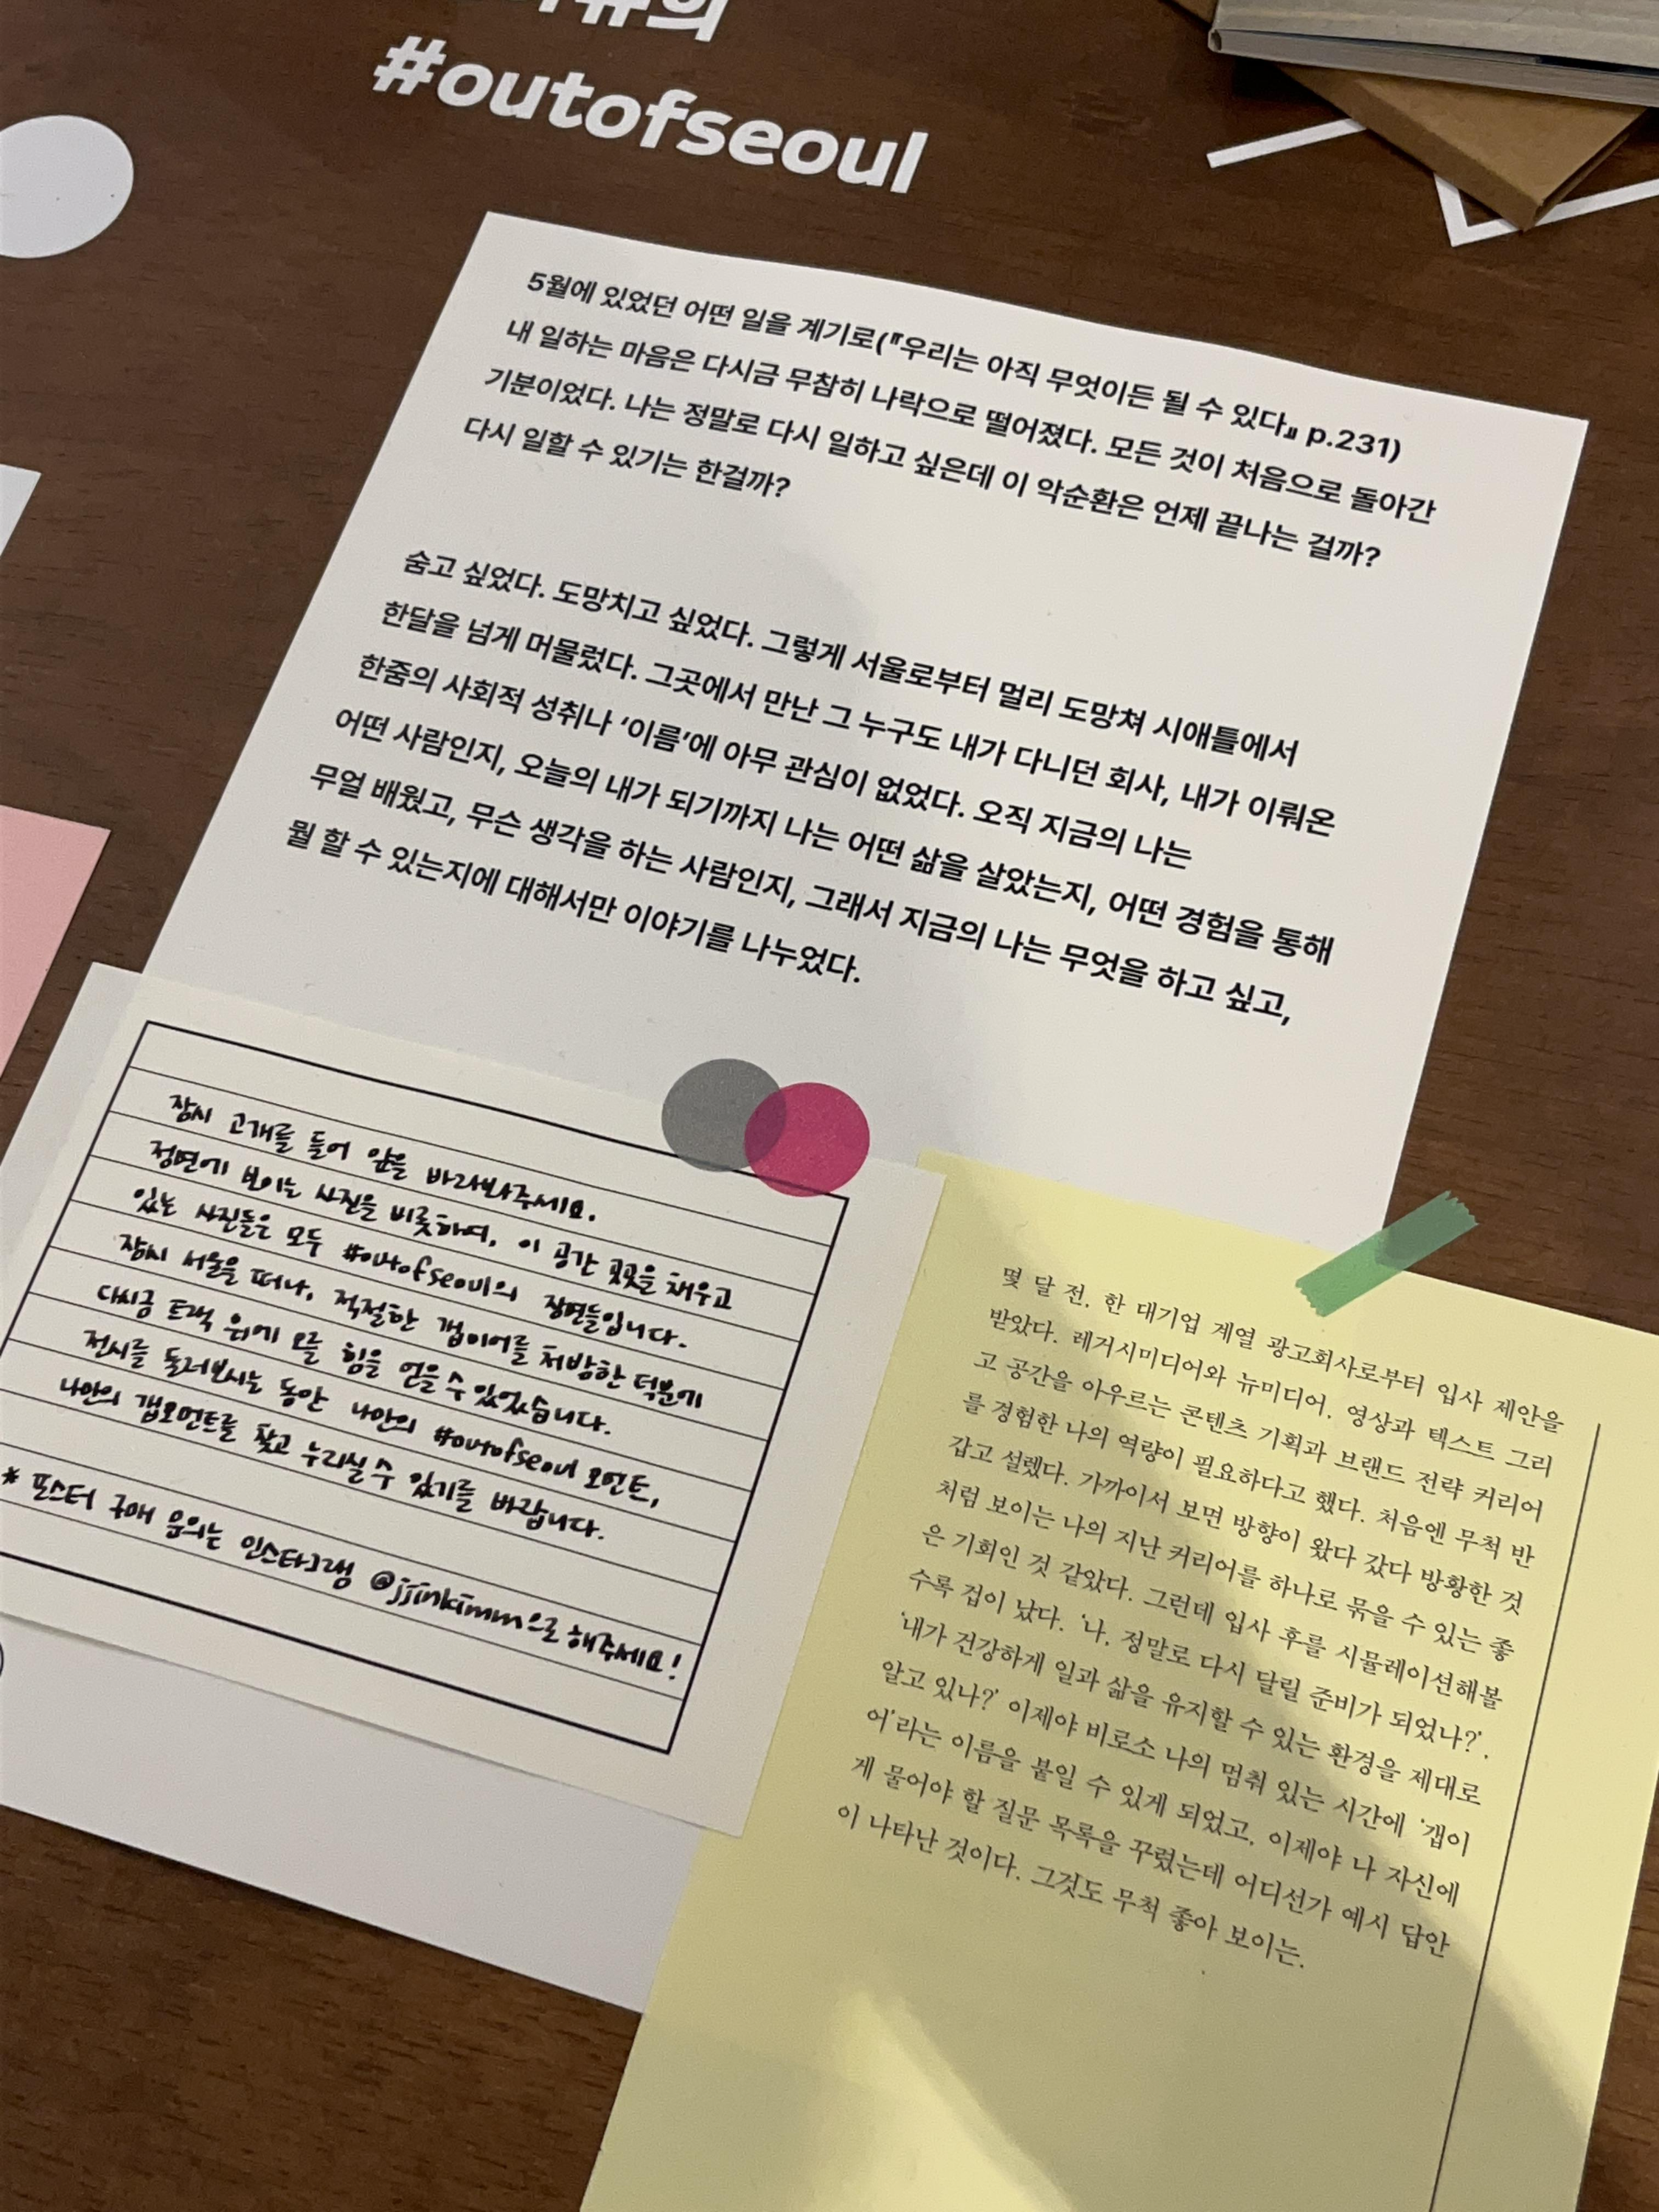 #outofseoul
5월에 있었던 어떤 일을 계기로(『우리는 아직 무엇이든 될 수 있다』 p.231)
내 일하는 마음은 다시금 무참히 나락으로 떨어졌다. 모든 것이 처음으로 돌아간
기분이었다. 나는 정말로 다시 일하고 싶은데 이 악순환은 언제 끝나는 걸까?
다시 일할 수 있기는 한걸까?
숨고 싶었다. 도망치고 싶었다. 그렇게 서울로부터 멀리 도망쳐 시애틀에서
한달을 넘게 머물렀다. 그곳에서 만난 그 누구도 내가 다니던 회사, 내가 이뤄온
한줌의 사회적 성취나 ‘이름’에 아무 관심이 없었다. 오직 지금의 나는
어떤 사람인지, 오늘의 내가 되기까지 나는 어떤 삶을 살았는지, 어떤 경험을 통해
무얼 배웠고, 무슨 생각을 하는 사람인지, 그래서 지금의 나는 무엇을 하고 싶고,
뭘 할 수 있는지에 대해서만 이야기를 나누었다.
잠시 고개를 들어 앞을 바라봐주세요.
정면에 보이는 사진을 비롯하여, 이 공간 곳곳을 채우고
있는 사진들은 모두 #outofseoul의 장면들입니다.
잠시 서울을 떠나, 적절한 갭이어를 처방한 덕분에
다시금 트랙 위에 오를 힘을 얻을 수 있었습니다.
전시를 둘러보시는 동안 나만의 #outofseoul 모먼트,
나만의 갭모먼트를 찾고 누리실 수 있기를 바랍니다.
* 포스터 구매 문의는 인스타그램 @jjinkimm으로 해주세요!
몇 달 전, 한 대기업 계열 광고회사로부터 입사 제안을
받았다. 레거시미디어와 뉴미디어, 영상과 텍스트 그리
고 공간을 아우르는 콘텐츠 기획과 브랜드 전략 커리어
를 경험한 나의 역량이 필요하다고 했다. 처음엔 무척 반
갑고 설렜다. 가까이서 보면 방향이 왔다 갔다 방황한 것
처럼 보이는 나의 지난 커리어를 하나로 묶을 수 있는 좋
은 기회인 것 같았다. 그런데 입사 후를 시뮬레이션해볼
수록 겁이 났다. ‘나, 정말로 다시 달릴 준비가 되었나?’,
‘내가 건강하게 일과 삶을 유지할 수 있는 환경을 제대로
알고 있나?’ 이제야 비로소 나의 멈춰 있는 시간에 ‘갭이
어’라는 이름을 붙일 수 있게 되었고, 이제야 나 자신에
게 물어야 할 질문 목록을 꾸렸는데 어디선가 예시 답안
이 나타난 것이다. 그것도 무척 좋아 보이는.